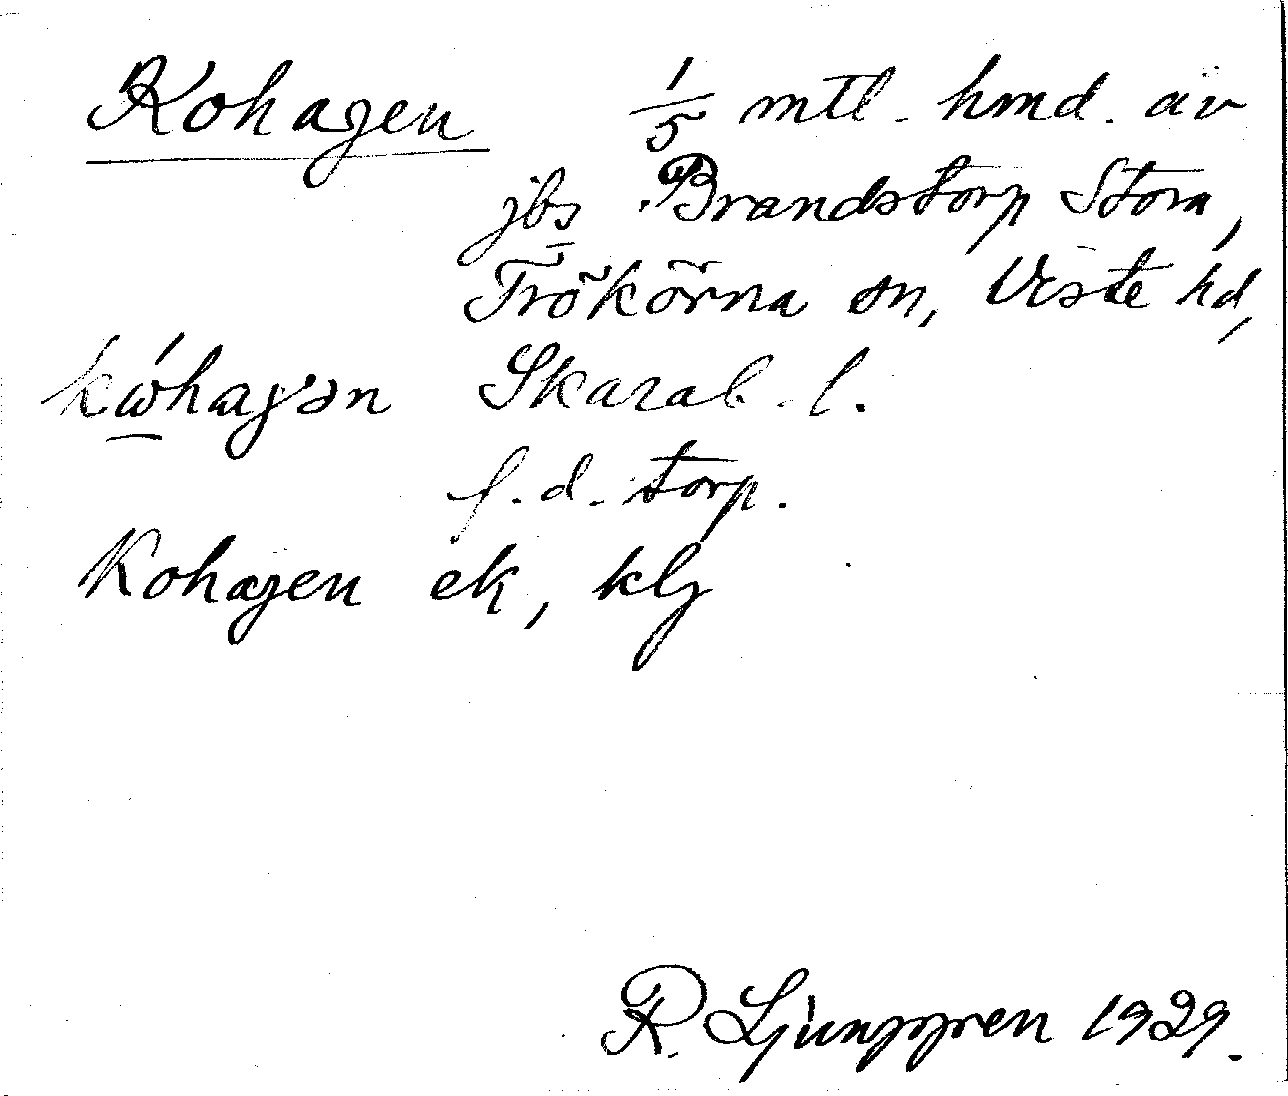 Kohagen 1/5 mtl. hmd. av
jbs Brandstorp Stora,
Trökörna sn, Viste hd,
kώhagən Skarab. l.
f. d. torp.
Kohagen ek, klj
R. Ljunggren 1929.